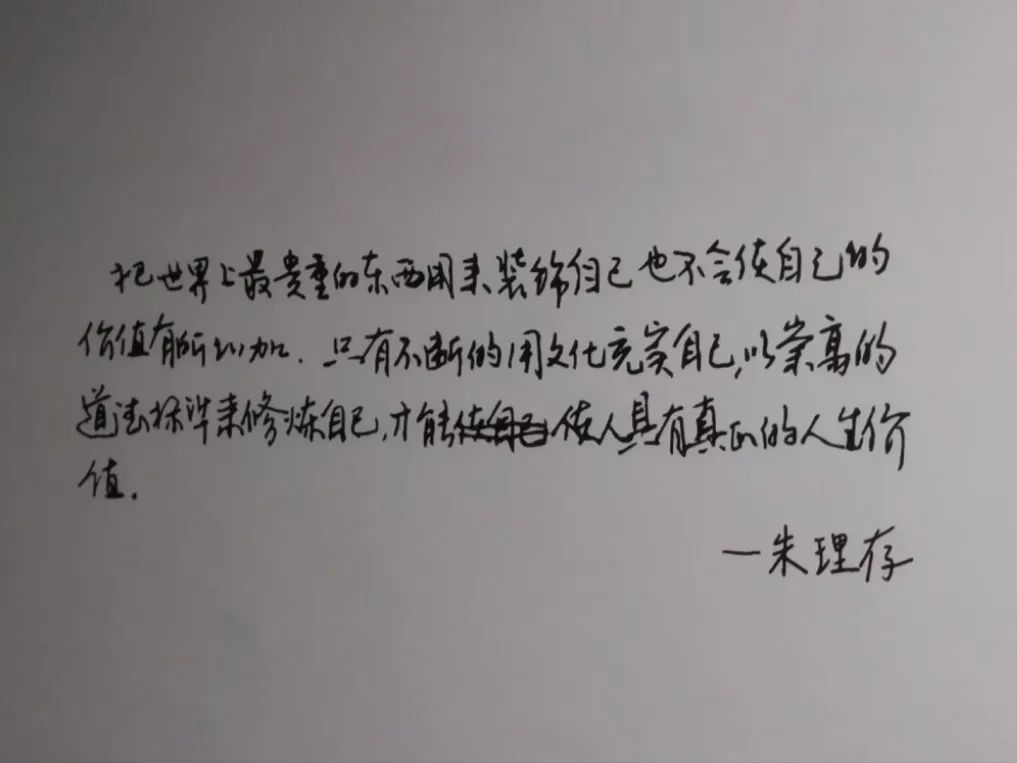 把世界上最贵重的东西用来装饰自己也不会使自己的
价值有所以加.只有不断的用文化充实自己,以崇高的
道法标准来修炼自己,才能使人具有真正的人生价
值.
一朱理存